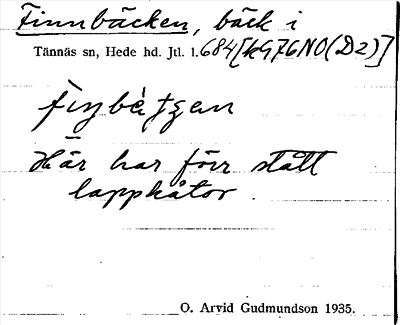 Finnbäcken, bäck i
Tännäs sn, Hede hd. Jtl. 1.684 [kG76NO(D2)]
Här har förr stått
lappkåtor.
O. Arvid Gudmundson 1935.